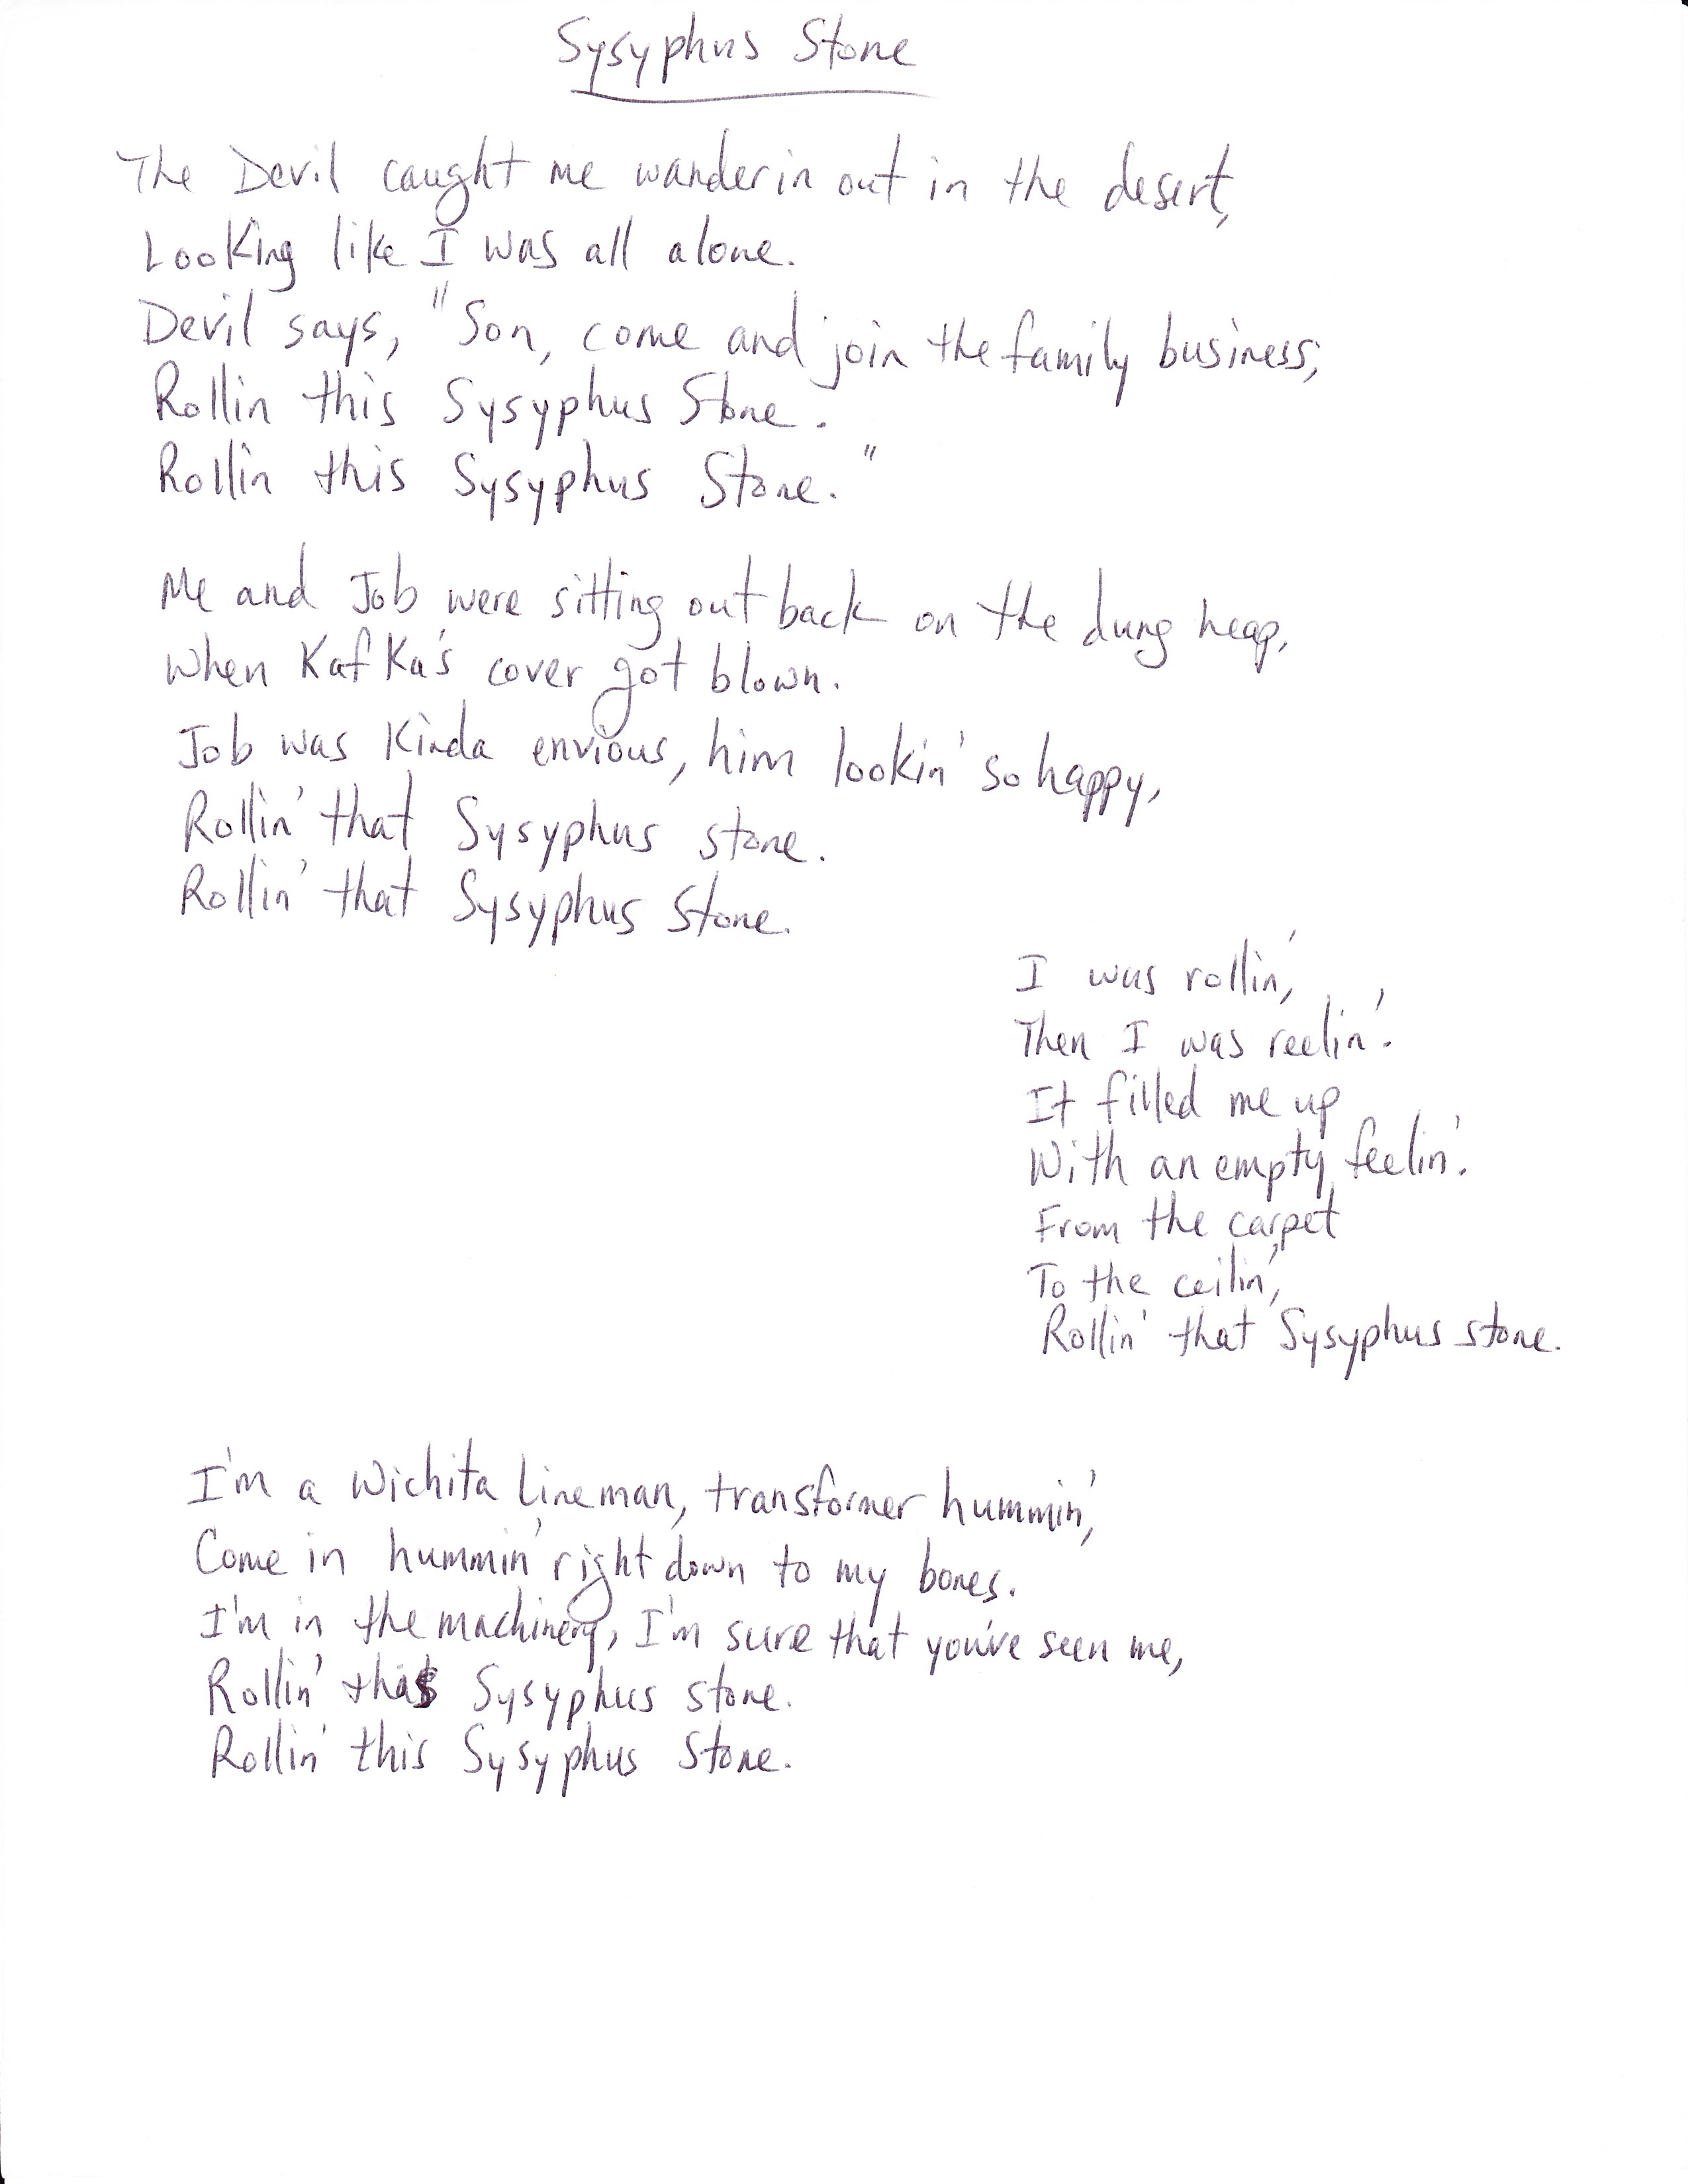 Sysyphus Stone
The Devil caught me wanderin out in the desert,
Looking like I was all alone.
Devil says, "Son, come and join the family business,
Rollin this Sysyphus Stone.
Rollin this Sysyphus Stone."
Me and Job were sitting out back on the dung heap,
When Kafka's cover got blown.
Job was kinda envious, him lookin' so happy,
Rollin' that Sysyphus stone.
Rollin' that Sysyphus Stone.
I was rollin',
Then I was reelin'.
It filled me up
With an empty feelin'.
From the carpet
To the ceilin',
Rollin' that Sysyphus stone.
I'm a Wichita Lineman, transformer hummin',
Come in hummin' right down to my bones.
I'm in the machinery, I'm sure that you've seen me,
Rollin' this Sysyphus stone.
Rollin' this Sysyphus Stone.